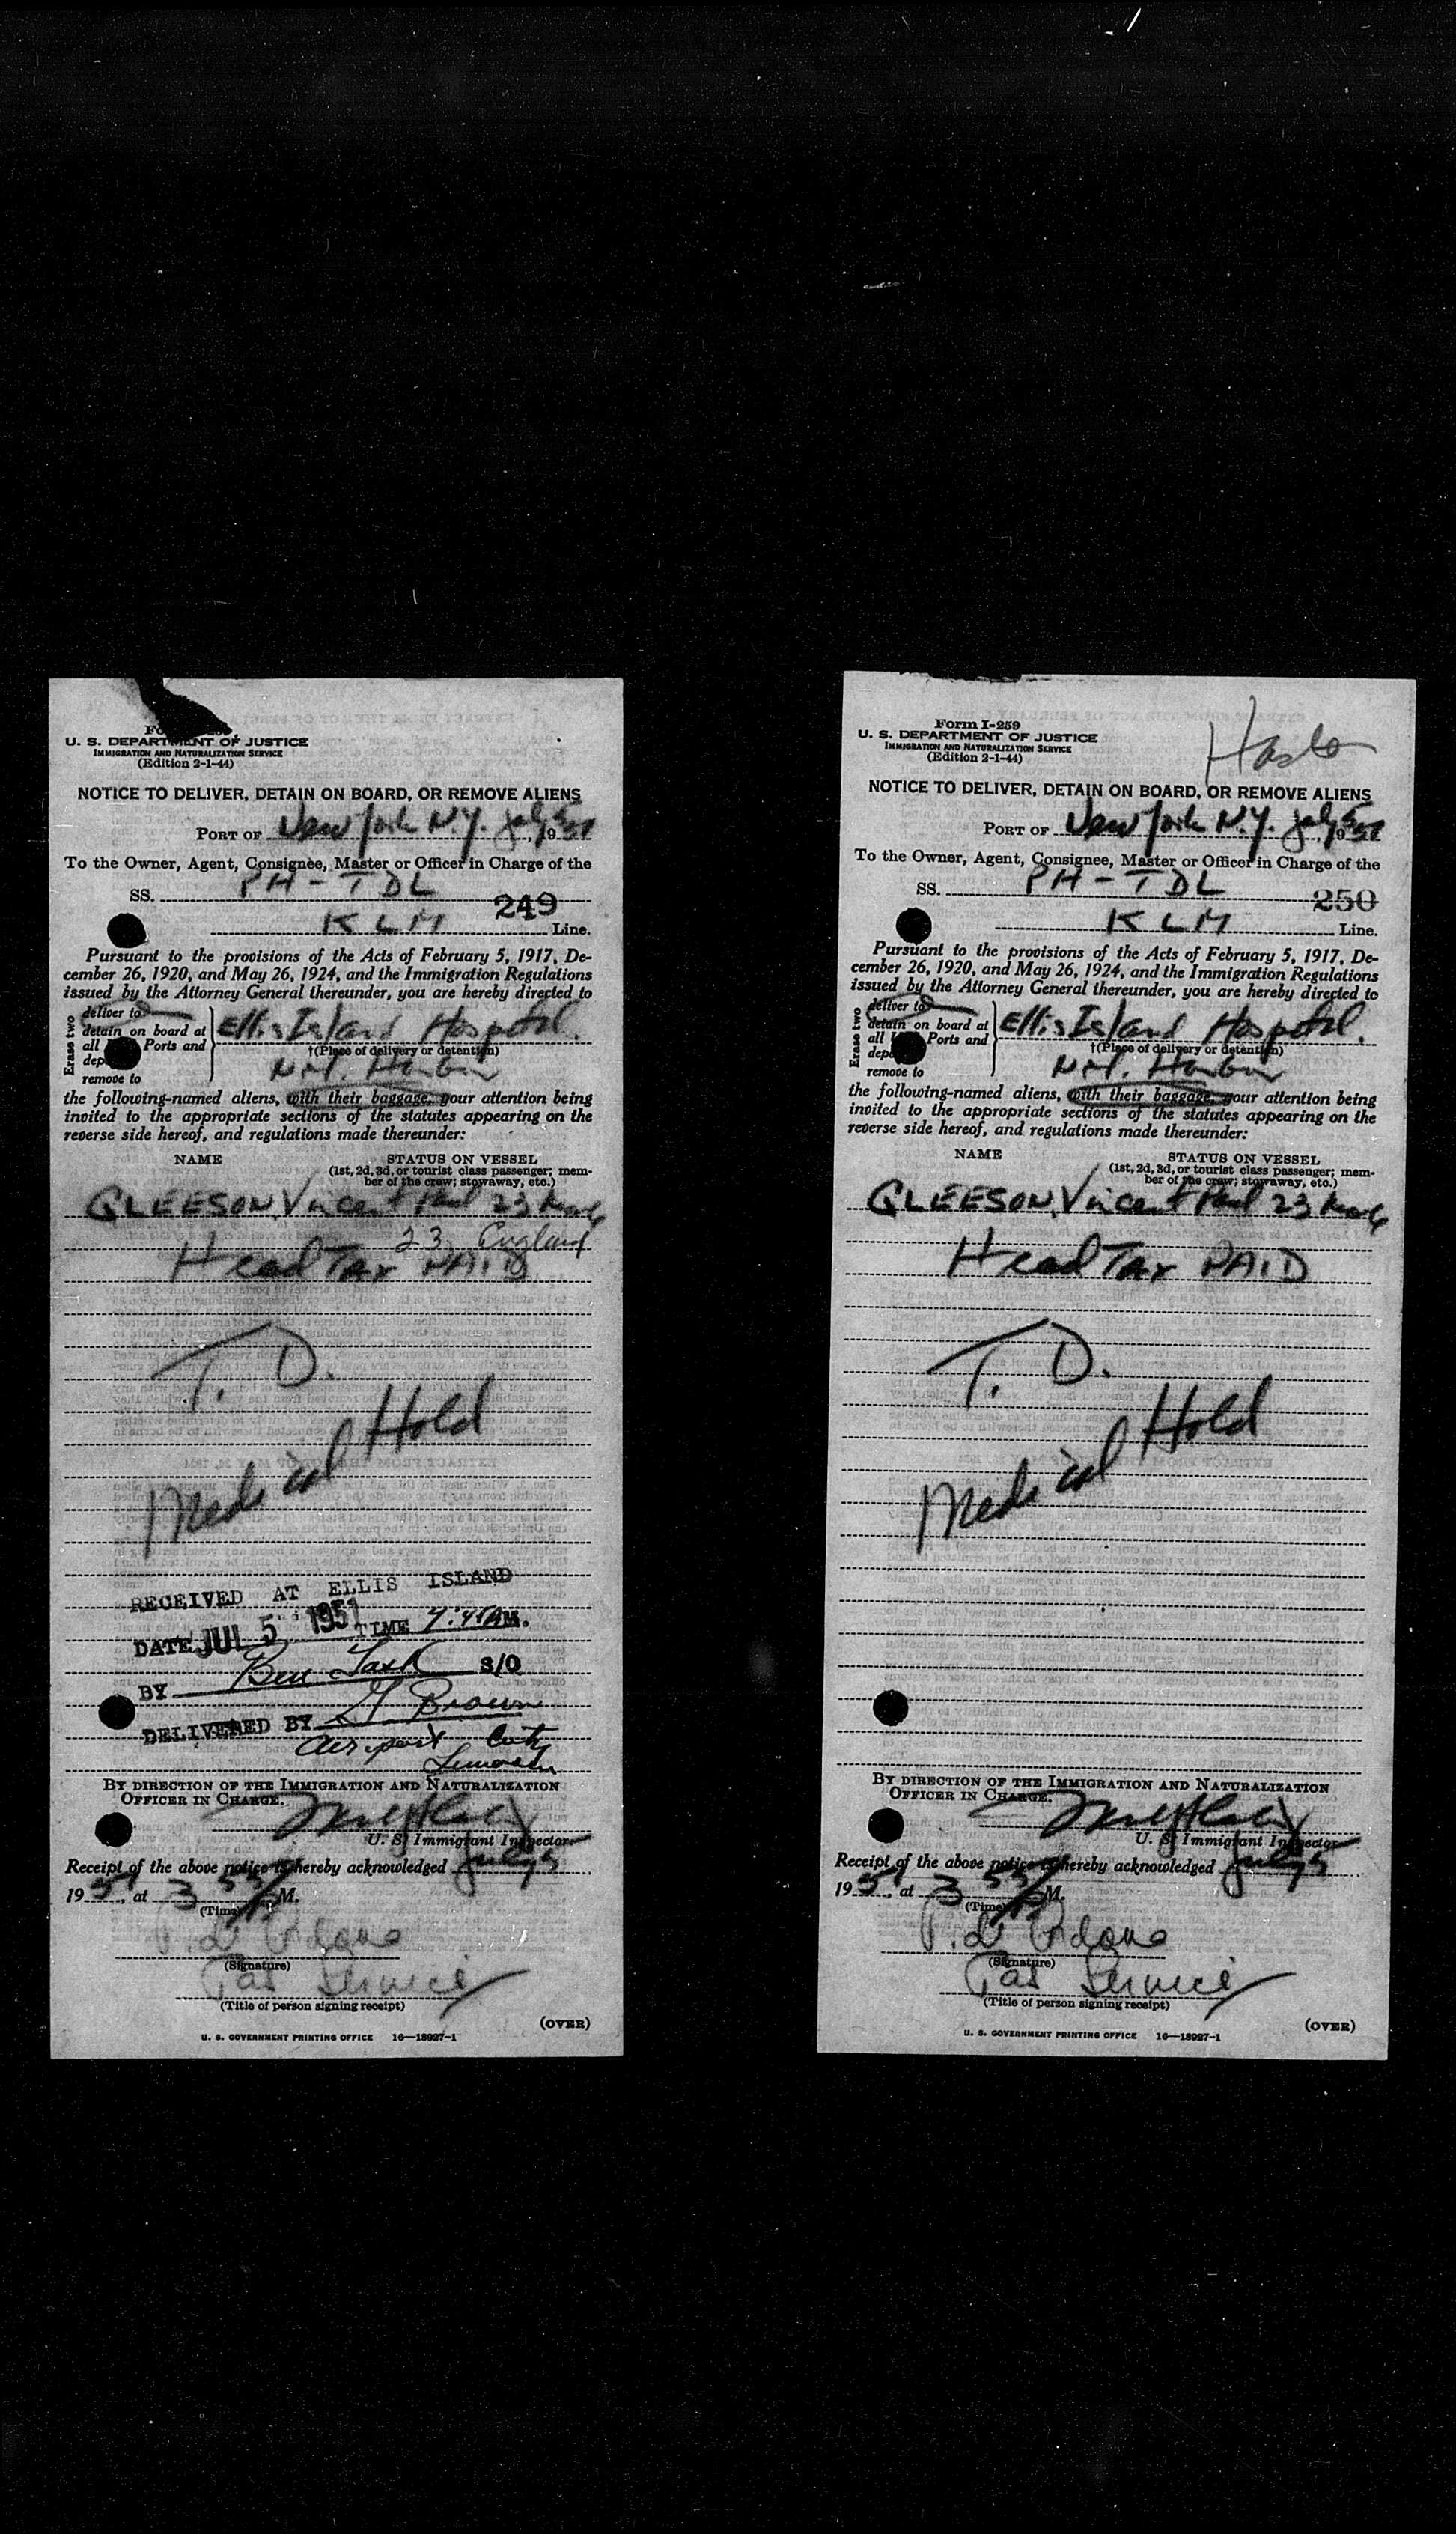 U. S. DEPARTMENT OF JUSTICE
IMMIGRATION AND NATURALIZATION SERVICE
(Edition 2-1-44)
NOTICE TO DELIVER, DETAIN ON BOARD, OR REMOVE ALIENS
PORT OF New York N.Y. July 5, 1951
To the Owner, Agent, Consignee, Master or Officer in Charge of the
SS. PH-TDL
249
KLM Line.
Pursuant to the provisions of the Acts of February 5, 1917, De-
cember 26, 1920, and May 26, 1924, and the Immigration Regulations
issued by the Attorney General thereunder, you are hereby directed to
Erase two
deliver to
detain on board at
all Ports and
remove to
Ellis Island Hospital.
†(Place of delivery or detention)
N.Y. Harbor
the following-named aliens, with their baggage, your attention being
invited to the appropriate sections of the statutes appearing on the
reverse side hereof, and regulations made thereunder:
NAME STATUS ON VESSEL
(1st, 2d, 3d, or tourist class passenger; mem-
ber of the crew; stowaway, etc.)
GLEESON, Vincent Paul 23 Male
23 England
Head Tax PAID
T. D.
Medical Hold
RECEIVED AT ELLIS ISLAND
DATE JUL 5 1951 TIME AM.
BY Ben S/O
DELIVERED BY G. Brown
Airport
BY DIRECTION OF THE IMMIGRATION AND NATURALIZATION
OFFICER IN CHARGE.
U. S. Immigrant Inspector
Receipt of the above notice is hereby acknowledged July 5
1951, at 3 55 M.
(Time)
(Signature)
Pas Service
(Title of person signing receipt)
(OVER)
U. S. GOVERNMENT PRINTING OFFICE 16—18927-1
Form I-259
U. S. DEPARTMENT OF JUSTICE
IMMIGRATION AND NATURALIZATION SERVICE
(Edition 2-1-44)
NOTICE TO DELIVER, DETAIN ON BOARD, OR REMOVE ALIENS
PORT OF New York N.Y. July 5, 1951
To the Owner, Agent, Consignee, Master or Officer in Charge of the
SS. PH-TDL
250
KLM Line.
Pursuant to the provisions of the Acts of February 5, 1917, De-
cember 26, 1920, and May 26, 1924, and the Immigration Regulations
issued by the Attorney General thereunder, you are hereby directed to
Erase two
deliver to
detain on board at
all Ports and
remove to
Ellis Island Hospital.
†(Place of delivery or detention)
N.Y. Harbor
the following-named aliens, with their baggage, your attention being
invited to the appropriate sections of the statutes appearing on the
reverse side hereof, and regulations made thereunder:
NAME STATUS ON VESSEL
(1st, 2d, 3d, or tourist class passenger; mem-
ber of the crew; stowaway, etc.)
GLEESON, Vincent Paul 23 Male
Head Tax PAID
T. D.
Medical Hold
BY DIRECTION OF THE IMMIGRATION AND NATURALIZATION
OFFICER IN CHARGE.
U. S. Immigrant Inspector
Receipt of the above notice is hereby acknowledged July 5
1951, at 3 55 M.
(Time)
(Signature)
Pas Service
(Title of person signing receipt)
(OVER)
U. S. GOVERNMENT PRINTING OFFICE 16—18927-1